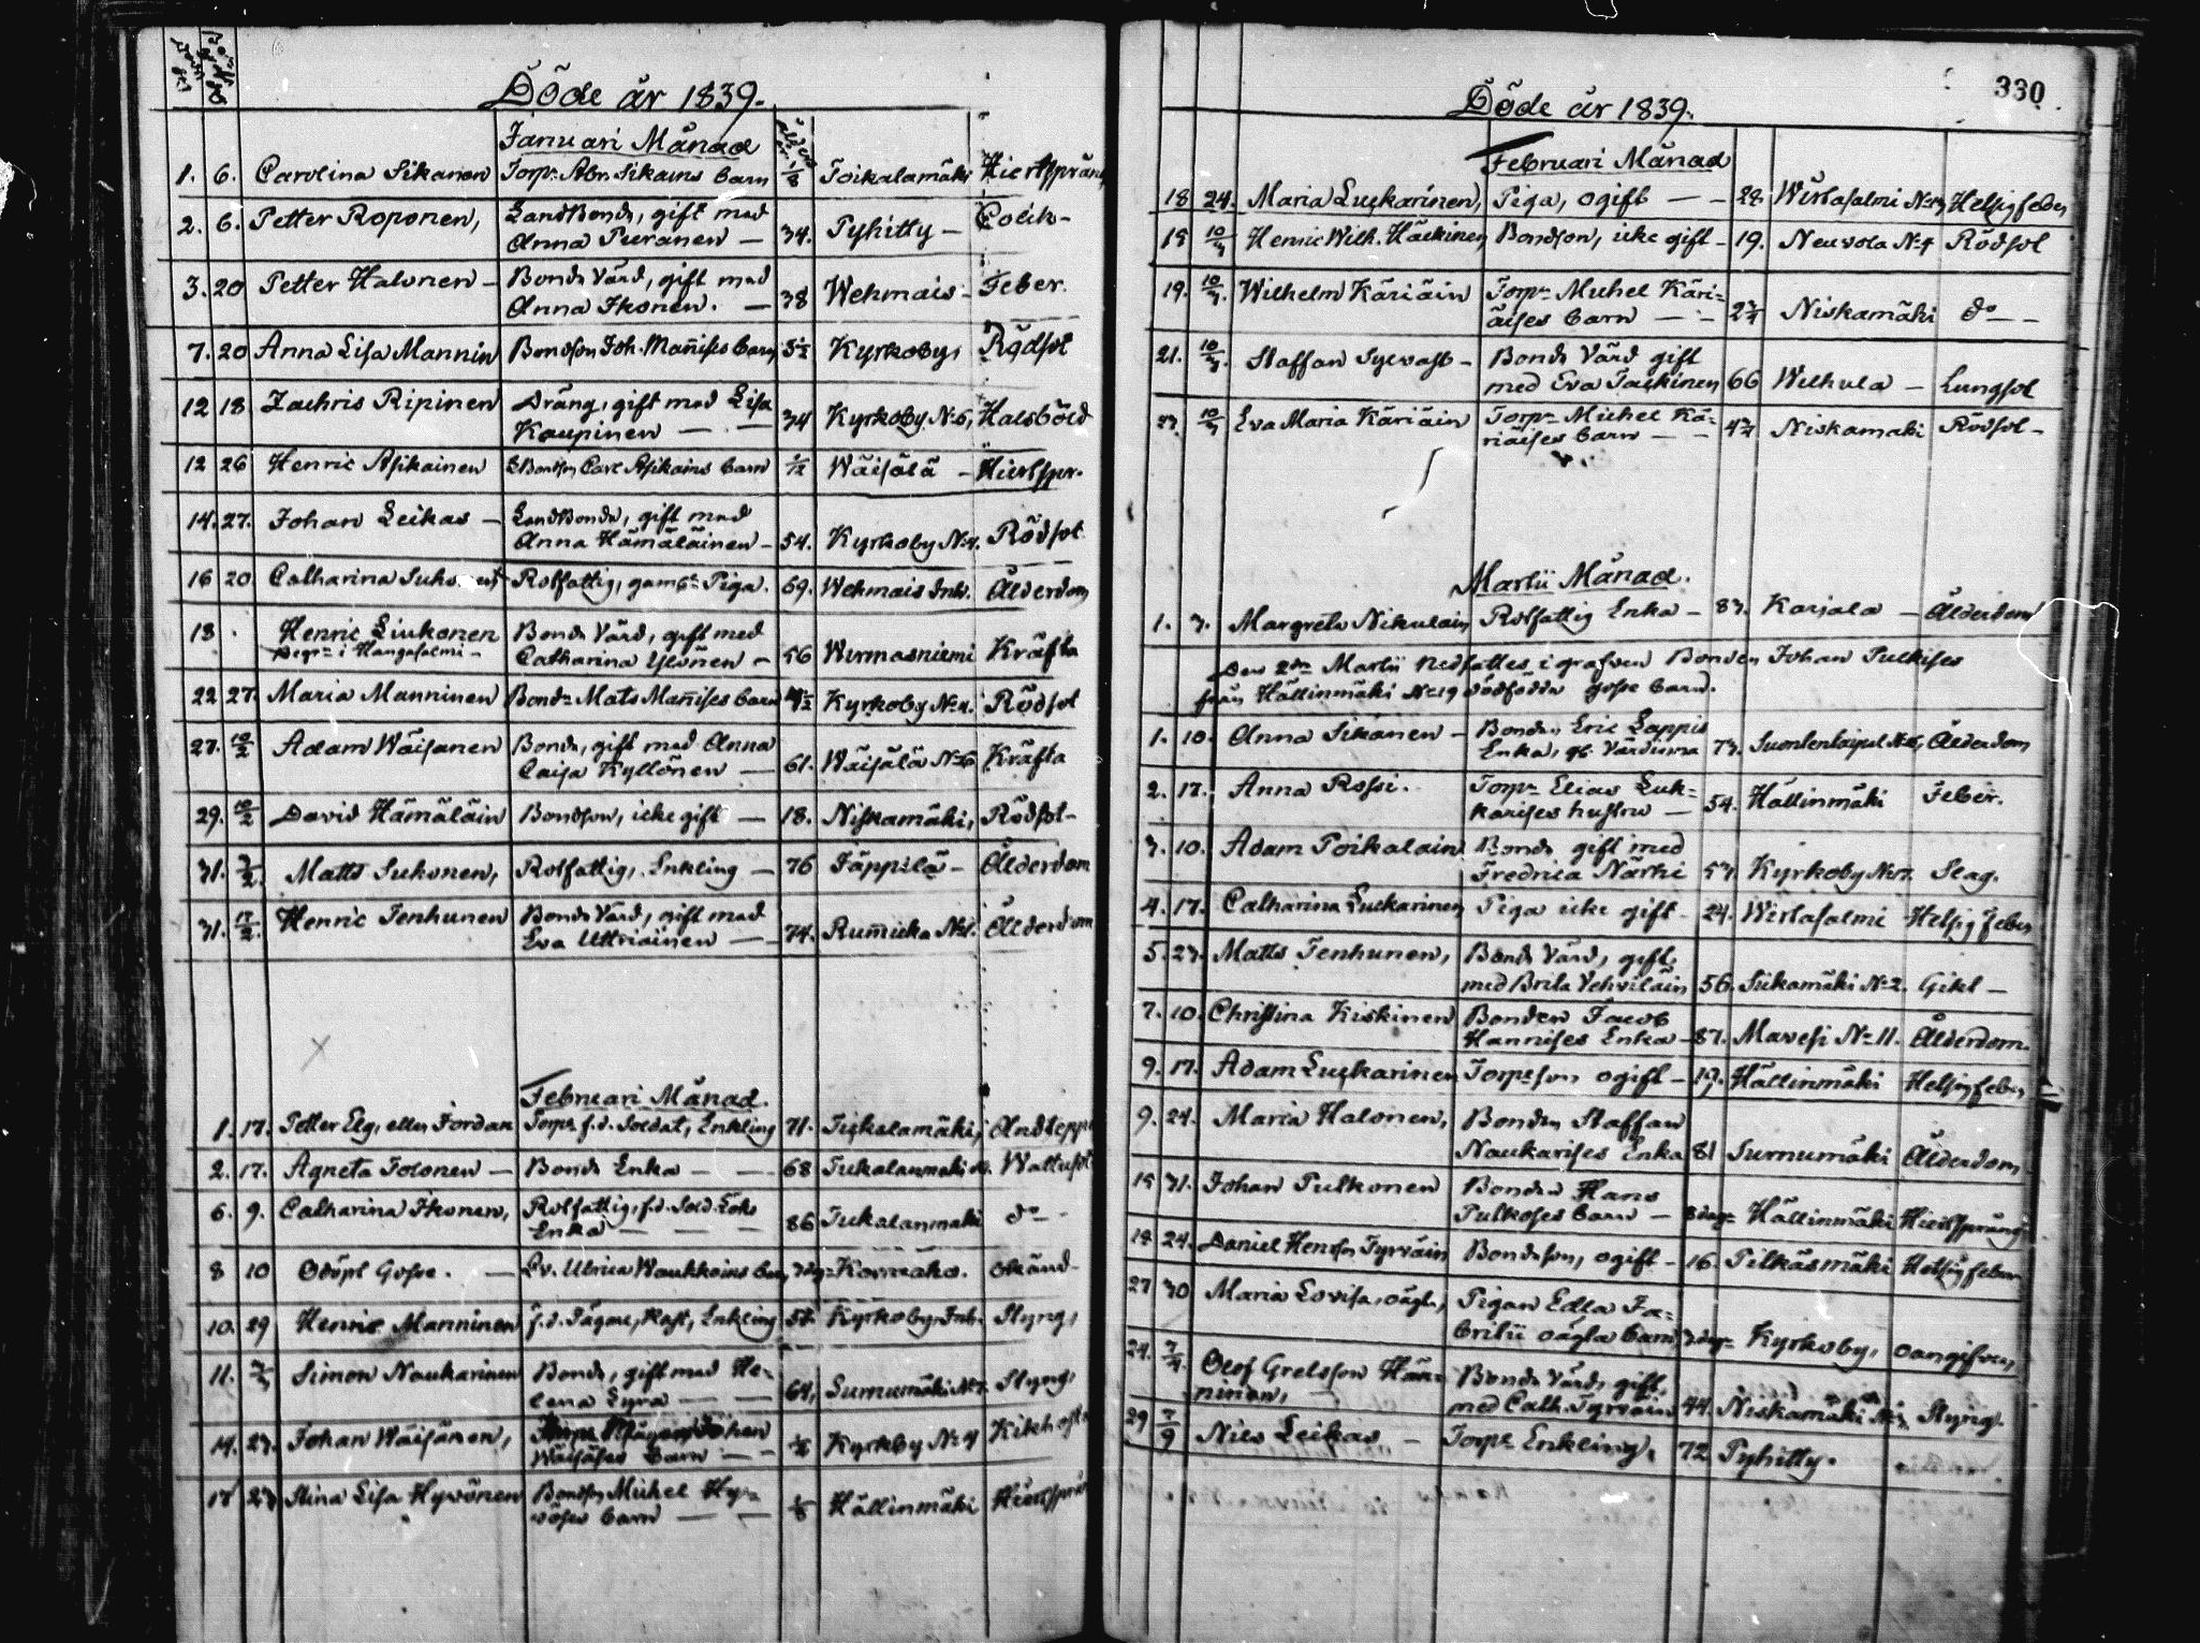 Döde år 1839.
Januari Månad
1. 6. Carolina Sikanen Torp: Abr. Sikains barn 1/8 Toikalamäki Hiertspräng
2. 6. Petter Roponen, Landbonde, gift med
Anna Puranen — 34. Pyhitty — Colik-
3. 20 Petter Halonen — Bonde Värd, gift med
Anna Ikonen. — 38 Wehmais — Feber.
7. 20 Anna Lisa Mannin Bondson Joh. Mañises barn 5½ Kyrkoby, Rödsot
12 18 Zachris Ripinen Dräng, gift med Lisa
Kaupinen — — 34 Kyrkoby N:6, Halsböld
12 26 Henric Asikainen Bondson Carl Asikains barn 1/12 Wäisälä — Hiertspr.
14. 27. Johan Leikas — Landbonde, gift med
Anna Hämäläinen — 54. Kyrkoby N:4. Rödsot
16 20 Catharina Rotfattig, gam: Piga. 69. Wehmais Inh. Ålderdom
18 . Henric Liukonen Bonde Värd, gift med
Begr: i Hangasalmi — Catharina Ylönen — 56 Wirmasniemi Kräfta
22 27. Maria Manninen Bond: Mats Mañises barn 4½ Kyrkoby N:4. Rödsot
27. 10/2 Adam Wäisänen Bonde, gift med Anna
Caisa Kyllönen — 61. Wäisälä N:6 Kräfta
29. 10/2 David Hämäläin Bondson, icke gift — 18. Niskamäki, Rödsot —
31. 3/2. Matts Sukonen, Rotfattig, Enkling — 76 Jäppilä — Ålderdom
31. 17/2. Henric Tenhunen Bonde Värd, gift med
Eva Uttriainen — 74. Rum̃icka N:1. Ålderdom
Februari Månad.
1. 17. Petter Elg, eller Jordan Torp: f.d. Soldat, Enkling 71. Andtäppa
2. 17. Agneta Tolonen — Bonde Enka — — 68 Wattusot
6. 9. Catharina Ikonen, Rotfattig, f.d. Sold.
Enka — — 86 Tukalanmäki d:o —
8 10 Odöpt Gosse. — Lv. Ulrica Waukkoins Okänd —
10. 29 Henric Manninen f.d. Jägare, Enkling Kyrkoby Inh. Styng,
11. Simon Naukarinen Bonde, gift med He-
lena Lyra — — 64, Surnumäki Styng,
14. 23. Johan Wäisänen, Johan
Wäisäses barn — Kyrkby N:4 Kikhosta
17 23 Stina Lisa Hyvönen Bondson Michel Hy-
vöses barn — — 1/8 Hällinmäki Hiertsprän
Döde år 1839.
330
Februari Månad
18 24. Maria Luckarinen, Piga, ogift — — 28 Wirtasalmi Hetsig feber
19 10/3 Henric Wilh. Häckinen Bondson, icke gift — 19. Neuvola N:4 Rödsot
19. 10/3. Wilhelm Käriäin Torp: Michel Käri-
äises barn — — Niskamäki d:o — —
21. 10/3. Staffan Sylvast — Bonde Värd gift
med Eva Jäckinen 66 Wilhula — Lungsot
23. 10/3 Eva Maria Käriäin Torp: Michel Kä-
riäises barn — — Niskamäki Rödsot —
Martii Månad.
1. 3. Margreta Nikulain Rotfattig Enka — 83. Karjala — Ålderdom
Den 2:dra Martii nedsattes i grafven Bonden Johan Pulkises
från Hällinmäki N:19 dödfödda gosse barn.
1. 10. Anna Sikanen — Bonden Eric Lappis
Enka, gl. Värdinna 73. Suontenlaipul Ålderdom
2. 17. Anna Rossi. Torp: Elias Luk-
karises hustru — 54. Hällinmäki Feber.
3. 10. Adam Poikalain Bonde gift med
Fredrica Närhi 53. Kyrkoby Slag.
4. 17. Catharina Luckarinen Piga icke gift — 24. Wirtasalmi Hetsig feber
5. 23. Matts Tenhunen, Bonde Värd, gift
med Brita Vehviläin 56. Siikamäki N:2. Gikt —
7. 10. Christina Kiskinen Bonden Jacob
Hannises Enka — 87. Mavesi N:11. Ålderdom.
9. 17. Adam Luckarinen Torpeson ogift — 19. Hällinmäki Hetsig feber
9. 24. Maria Halonen, Bonden Staffan
Naukarises Enka 81 Surnumäki Ålderdom
15 31. Johan Pulkonen Bonden Hans
Pulkoses barn — 8 dag: Hällinmäki Hiertspräng
18 24. Daniel Henrsson Tyrväin Bondeson, ogift — 16. Pilkäsmäki Hetsig feber
27 30 Maria Lovisa, oägta, Pigan Edla Fa-
britii oägta barn 3 dag: Kyrkoby, oangifven,
24. Olof Gretsson Hän-
ninen, Bonde Värd, gift
med Cath. Tyrväin 44. Niskamäki Styng.
29 7/9 Nils Leikas — Torp: Enkling, 72 Pyhitty.